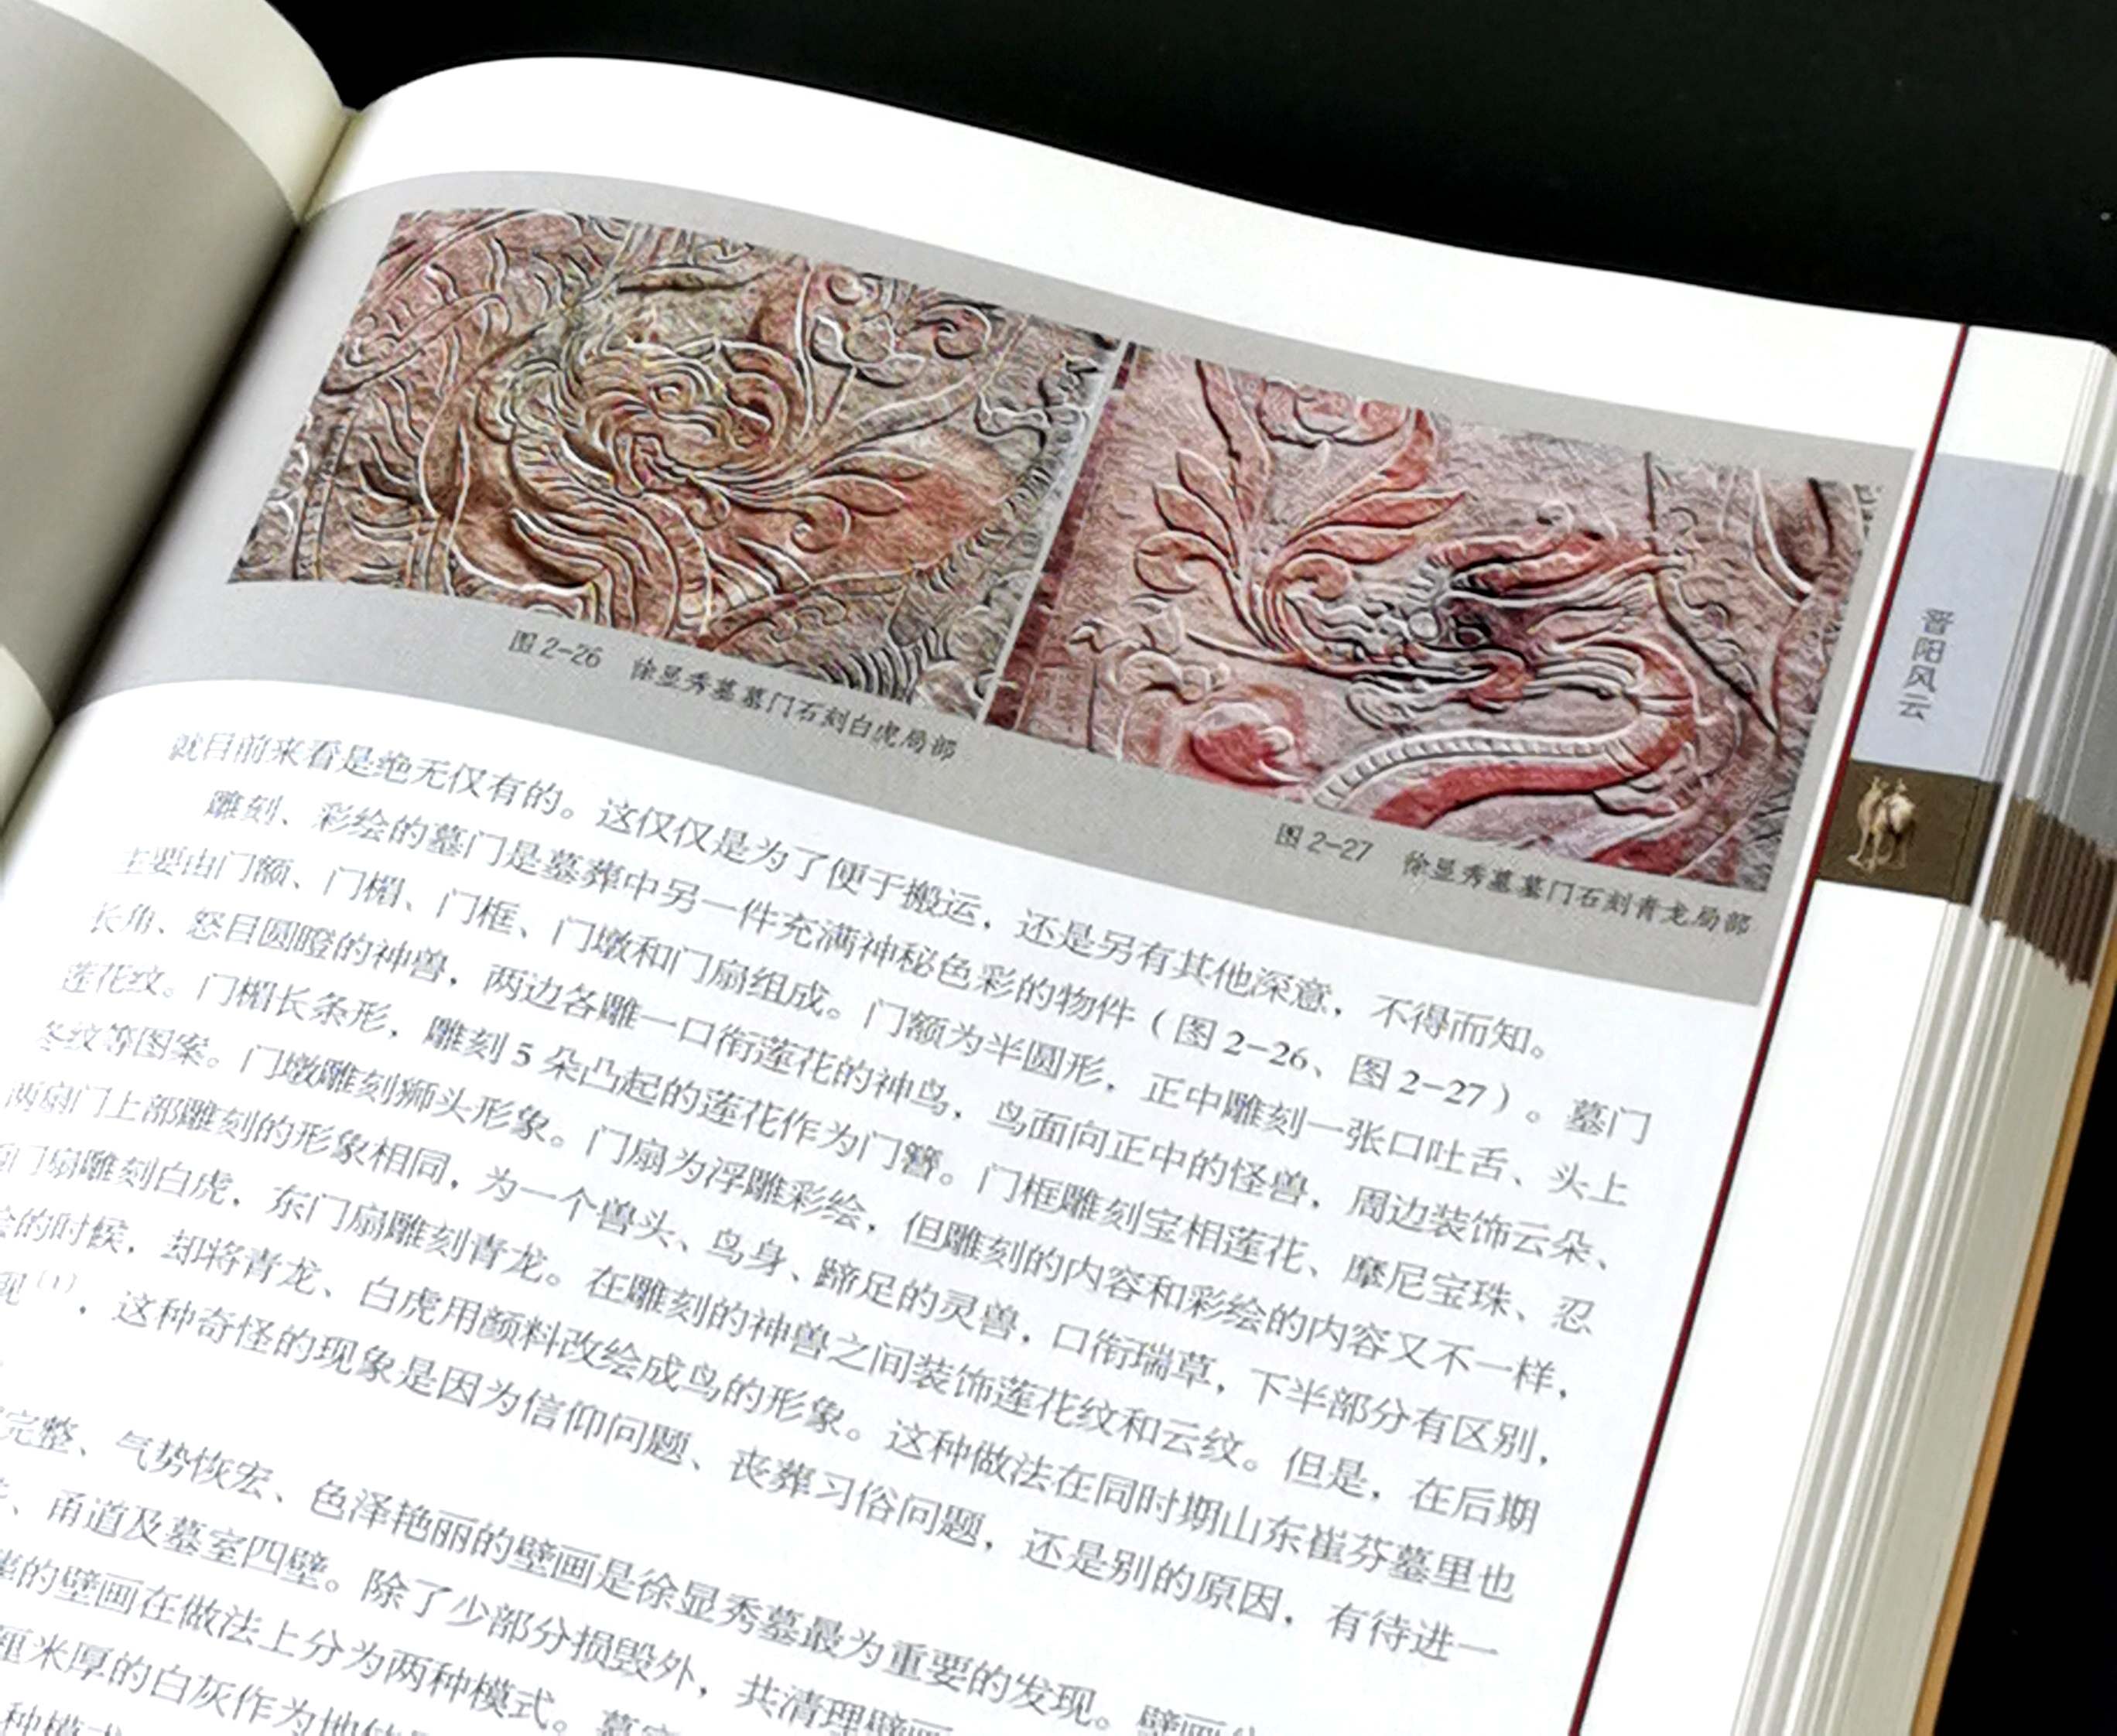 图 2-26　徐显秀墓墓门石刻白虎局部
图 2-27　徐显秀墓墓门石刻青龙局部
晋阳风云
就目前来看是绝无仅有的。这仅仅是为了便于搬运，还是另有其他深意，不得而知。
雕刻、彩绘的墓门是墓葬中另一件充满神秘色彩的物件（图 2-26、图 2-27）。墓门
主要由门额、门楣、门框、门墩和门扇组成。门额为半圆形，正中雕刻一张口吐舌、头上
长角、怒目圆瞪的神兽，两边各雕一口衔莲花的神鸟，鸟面向正中的怪兽，周边装饰云朵、
莲花纹。门楣长条形，雕刻 5 朵凸起的莲花作为门簪。门框雕刻宝相莲花、摩尼宝珠、忍
冬纹等图案。门墩雕刻狮头形象。门扇为浮雕彩绘，但雕刻的内容和彩绘的内容又不一样，
两扇门上部雕刻的形象相同，为一个兽头、鸟身、蹄足的灵兽，口衔瑞草，下半部分有区别，
门扇雕刻白虎，东门扇雕刻青龙。在雕刻的神兽之间装饰莲花纹和云纹。但是，在后期
绘的时候，却将青龙、白虎用颜料改绘成鸟的形象。这种做法在同时期山东崔芬墓里也
现〔1〕，这种奇怪的现象是因为信仰问题、丧葬习俗问题，还是别的原因，有待进一
完整、气势恢宏、色泽艳丽的壁画是徐显秀墓最为重要的发现。壁画
、甬道及墓室四壁。除了少部分损毁外，共清理壁画
的壁画在做法上分为两种模式。墓室
厘米厚的白灰作为地
种模式